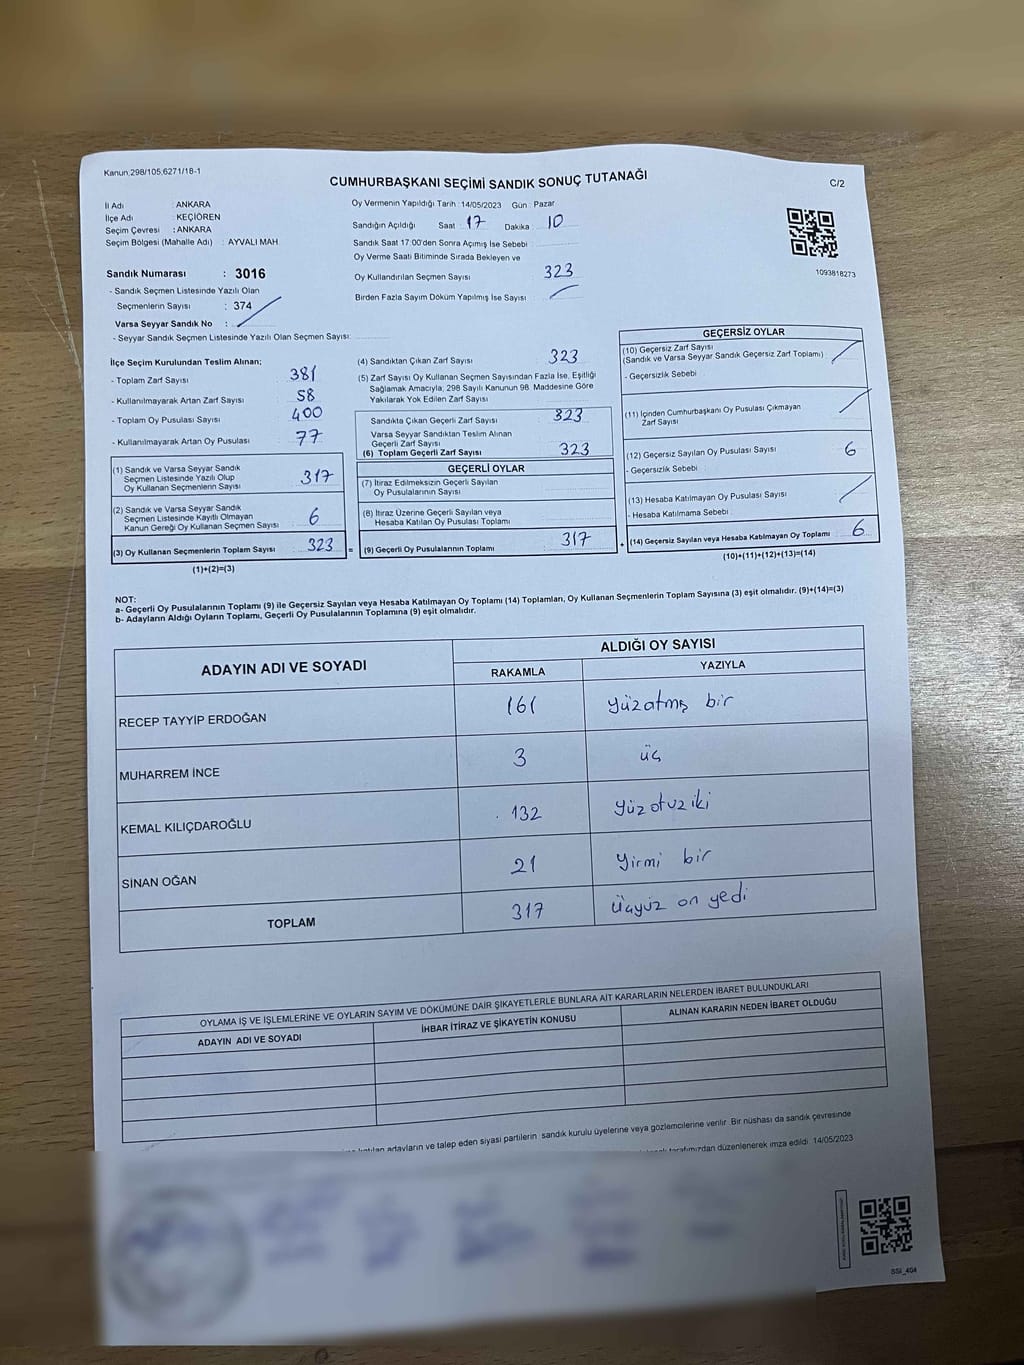 Kanun.298/105,6271/18-1
CUMHURBAŞKANI SEÇİMİ SANDIK SONUÇ TUTANAĞI
C/2
İl Adı : ANKARA
İlçe Adı : KEÇİÖREN
Seçim Çevresi : ANKARA
Seçim Bölgesi (Mahalle Adı) : AYVALI MAH.
Sandık Numarası : 3016
- Sandık Seçmen Listesinde Yazılı Olan
Seçmenlerin Sayısı : 374
Varsa Seyyar Sandık No :
- Seyyar Sandık Seçmen Listesinde Yazılı Olan Seçmen Sayısı:
Oy Vermenin Yapıldığı Tarih : 14/05/2023 Gün : Pazar
Sandığın Açıldığı Saat 17 Dakika 10
Sandık Saat 17:00'den Sonra Açımış İse Sebebi
Oy Verme Saati Bitiminde Sırada Bekleyen ve
Oy Kullandırılan Seçmen Sayısı 323
Birden Fazla Sayım Döküm Yapılmış İse Sayısı
1093818273
İlçe Seçim Kurulundan Teslim Alınan;
- Toplam Zarf Sayısı 381
- Kullanılmayarak Artan Zarf Sayısı 58
- Toplam Oy Pusulası Sayısı 400
- Kullanılmayarak Artan Oy Pusulası 77
(1) Sandık ve Varsa Seyyar Sandık
Seçmen Listesinde Yazılı Olup
Oy Kullanan Seçmenlerin Sayısı 317
(2) Sandık ve Varsa Seyyar Sandık
Seçmen Listesinde Kayıtlı Olmayan
Kanun Gereği Oy Kullanan Seçmen Sayısı 6
(3) Oy Kullanan Seçmenlerin Toplam Sayısı 323 =
(1)+(2)=(3)
(4) Sandıktan Çıkan Zarf Sayısı 323
(5) Zarf Sayısı Oy Kullanan Seçmen Sayısından Fazla İse, Eşitliği
Sağlamak Amacıyla, 298 Sayılı Kanunun 98. Maddesine Göre
Yakılarak Yok Edilen Zarf Sayısı
Sandıkta Çıkan Geçerli Zarf Sayısı 323
Varsa Seyyar Sandıktan Teslim Alınan
Geçerli Zarf Sayısı
(6) Toplam Geçerli Zarf Sayısı 323
GEÇERLİ OYLAR
(7) İtiraz Edilmeksizin Geçerli Sayılan
Oy Pusulalarının Sayısı
(8) İtiraz Üzerine Geçerli Sayılan veya
Hesaba Katılan Oy Pusulası Toplamı
(9) Geçerli Oy Pusulalarının Toplamı 317 +
GEÇERSİZ OYLAR
(10) Geçersiz Zarf Sayısı
(Sandık ve Varsa Seyyar Sandık Geçersiz Zarf Toplamı)
- Geçersizlik Sebebi
(11) İçinden Cumhurbaşkanı Oy Pusulası Çıkmayan
Zarf Sayısı
(12) Geçersiz Sayılan Oy Pusulası Sayısı 6
- Geçersizlik Sebebi
(13) Hesaba Katılmayan Oy Pusulası Sayısı
- Hesaba Katılmama Sebebi
(14) Geçersiz Sayılan veya Hesaba Katılmayan Oy Toplamı 6
(10)+(11)+(12)+(13)=(14)
NOT:
a- Geçerli Oy Pusulalarının Toplamı (9) ile Geçersiz Sayılan veya Hesaba Katılmayan Oy Toplamı (14) Toplamları, Oy Kullanan Seçmenlerin Toplam Sayısına (3) eşit olmalıdır. (9)+(14)=(3)
b- Adayların Aldığı Oyların Toplamı, Geçerli Oy Pusulalarının Toplamına (9) eşit olmalıdır.
ADAYIN ADI VE SOYADI
ALDIĞI OY SAYISI
RAKAMLA YAZIYLA
RECEP TAYYİP ERDOĞAN 161 yüzatmş bir
MUHARREM İNCE 3 üç
KEMAL KILIÇDAROĞLU 132 yüzotuziki
SİNAN OĞAN 21 yirmi bir
TOPLAM 317 üçyüz on yedi
OYLAMA İŞ VE İŞLEMLERİNE VE OYLARIN SAYIM VE DÖKÜMÜNE DAİR ŞİKAYETLERLE BUNLARA AİT KARARLARIN NELERDEN İBARET BULUNDUKLARI
ADAYIN ADI VE SOYADI İHBAR İTİRAZ VE ŞİKAYETİN KONUSU ALINAN KARARIN NEDEN İBARET OLDUĞU
adayların ve talep eden siyasi partilerin sandık kurulu üyelerine veya gözlemcilerine verilir. Bir nüshası da sandık çevresinde
tarafımızdan düzenlenerek imza edildi. 14/05/2023